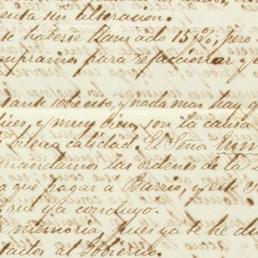 enta sin alteracion.
e haberse llamado 15%, pero
compraunos para refaccionar y e
tante sebcento, y nada mas hay q
ices, y muy bien, son la causa
buena calidad. El Señor
mandamos las ordenes de la
o que pagar á Barrio, y este S
Cruz ya concluyo.
memoria, pues ya te he di
tador al Gobierno.